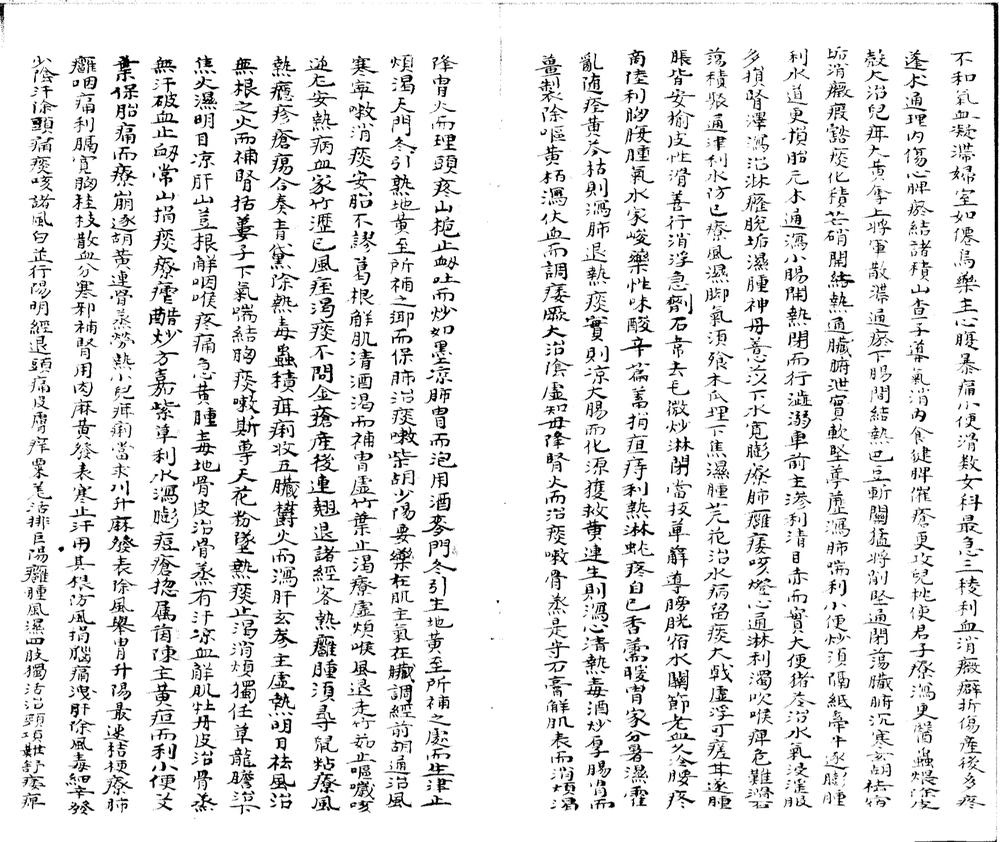 不和氣血凝滯婦室如僊烏藥主心腹暴痛小便滑数女科最急三棱利血消癥癖折傷産後多疼
蓬术通理内傷心脾疼結諸積山查子導氣消肉食健脾催瘡更攻兒枕使君子療瀉更醫蟲煨除皮
殼大治兒疳大黃李上将軍散濃通瘀下腸間結熱巴豆斬關猛将削堅通閉蕩臟腑沉寒玄胡祛宿
垢消癥瘕豁痰化積芒硝開結熱通臟腑泄實軟堅葶藶瀉肺喘利小便炒須隔紙牽牛逐膨腫
利水道更損胎元木通瀉小腸開熱閉而行澁溺車前主滲利清目赤而實大便猪苓治水氣浸淫服
多損腎澤瀉治淋癃脫垢濕腫神丹薏苡下水寛膨療肺癰痿咳燈心通淋利濁吹喉痺危難滑石
蕩積聚通津利水防已療風濕脚氣須飱木瓜理下焦濕腫芫花治水病留痰大戟虛浮可瘥甘遂腫
脹皆安榆皮性滑善行消浮急劑石韋去毛微炒淋閉當投萆薢導膀胱宿水關節老血久冷腰疼
商陸利胸腹腫氣水家峻藥性味酸辛萹蓄捎疸痔利熱淋虵疼自已香薷暖胃家分暑濕霍
亂随痊黃芩枯則瀉肺退熱痰實則凉大腸而化源獲救黃連生則瀉心清熱毒酒炒厚腸胃而
薑製除嘔黃柏瀉伏血而調痿厥大治陰虛知母降腎火而治痰嗽骨蒸是守石膏觧肌表而消煩渴
降胃火而理頭疼山梔止衂吐而炒如墨凉肺胃而泡用酒麥門冬引生地黃至所補之處而生津止
煩渴天門冬引熟地黃至所補之鄊而保肺治痰嗽柴胡少陽要藥在肌主氣在臟調經前胡通治風
寒寧嗽消痰安胎不謬葛根觧肌清酒渴而補胃虛竹葉止渴療虛煩喉風退走竹茹止嘔噦咳
逆尤安熱病血家竹瀝已風痓渴痰不問金瘡産後連翹退諸經客熱癰腫須尋鼠粘療風
熱癮疹瘡瘍合奏青黛除熱毒蟲積疳痢收五臟欝火而瀉肝玄參主虛熱明目祛風治
無根之火而補腎括蔞子下氣喘結胸痰嗽斯專天花粉墜熱痰止渴消煩獨任草龍膽治下
焦火濕明目凉肝山豆根觧咽喉疼痛急黃腫毒地骨皮治骨蒸有汗凉血觧肌牡丹皮治骨蒸
無汗破血止衂常山捎痰療瘧醋炒方嘉紫草利水瀉膨痘瘡揔属茵陳主黃疸而利小便艾
葉保胎痛而療崩逐胡黃連骨蒸勞熱小兒疳痢當求川升麻發表除風舉胃升陽最速桔梗療肺
癰咽痛利膈寛胸桂枝散血分寒邪補腎用肉麻黃發表寒止汗用其根防風捎腦痛洩肝除風毒細辛發
少陰汗除頭痛痰咳諸風白芷行陽明經退頭痛皮膚痒粟羌活排巨陽癰腫風濕四肢獨活治頭項難舒痿痺